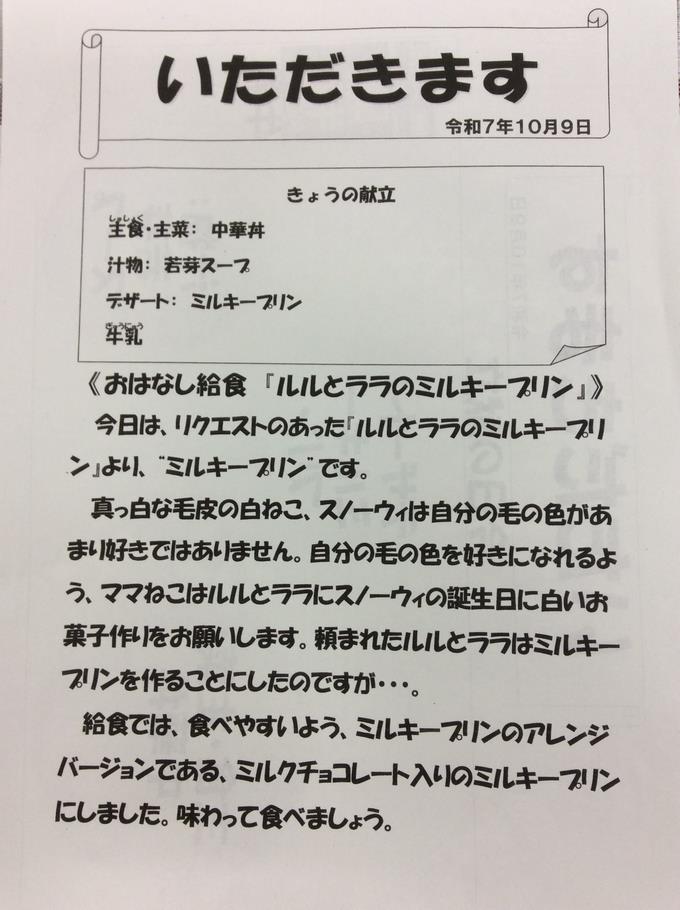 いただきます
令和7年10月9日
きょうの献立
しゅしょく
主食・主菜： 中華丼
汁物： 若芽スープ
デザート： ミルキープリン
ぎゅうにゅう
牛乳
《おはなし給食 『ルルとララのミルキープリン』》
今日は、リクエストのあった『ルルとララのミルキープリ
ン』より、“ミルキープリン”です。
真っ白な毛皮の白ねこ、スノーウィは自分の毛の色があ
まり好きではありません。自分の毛の色を好きになれるよ
う、ママねこはルルとララにスノーウィの誕生日に白いお
菓子作りをお願いします。頼まれたルルとララはミルキー
プリンを作ることにしたのですが・・・。
給食では、食べやすいよう、ミルキープリンのアレンジ
バージョンである、ミルクチョコレート入りのミルキープリン
にしました。味わって食べましょう。